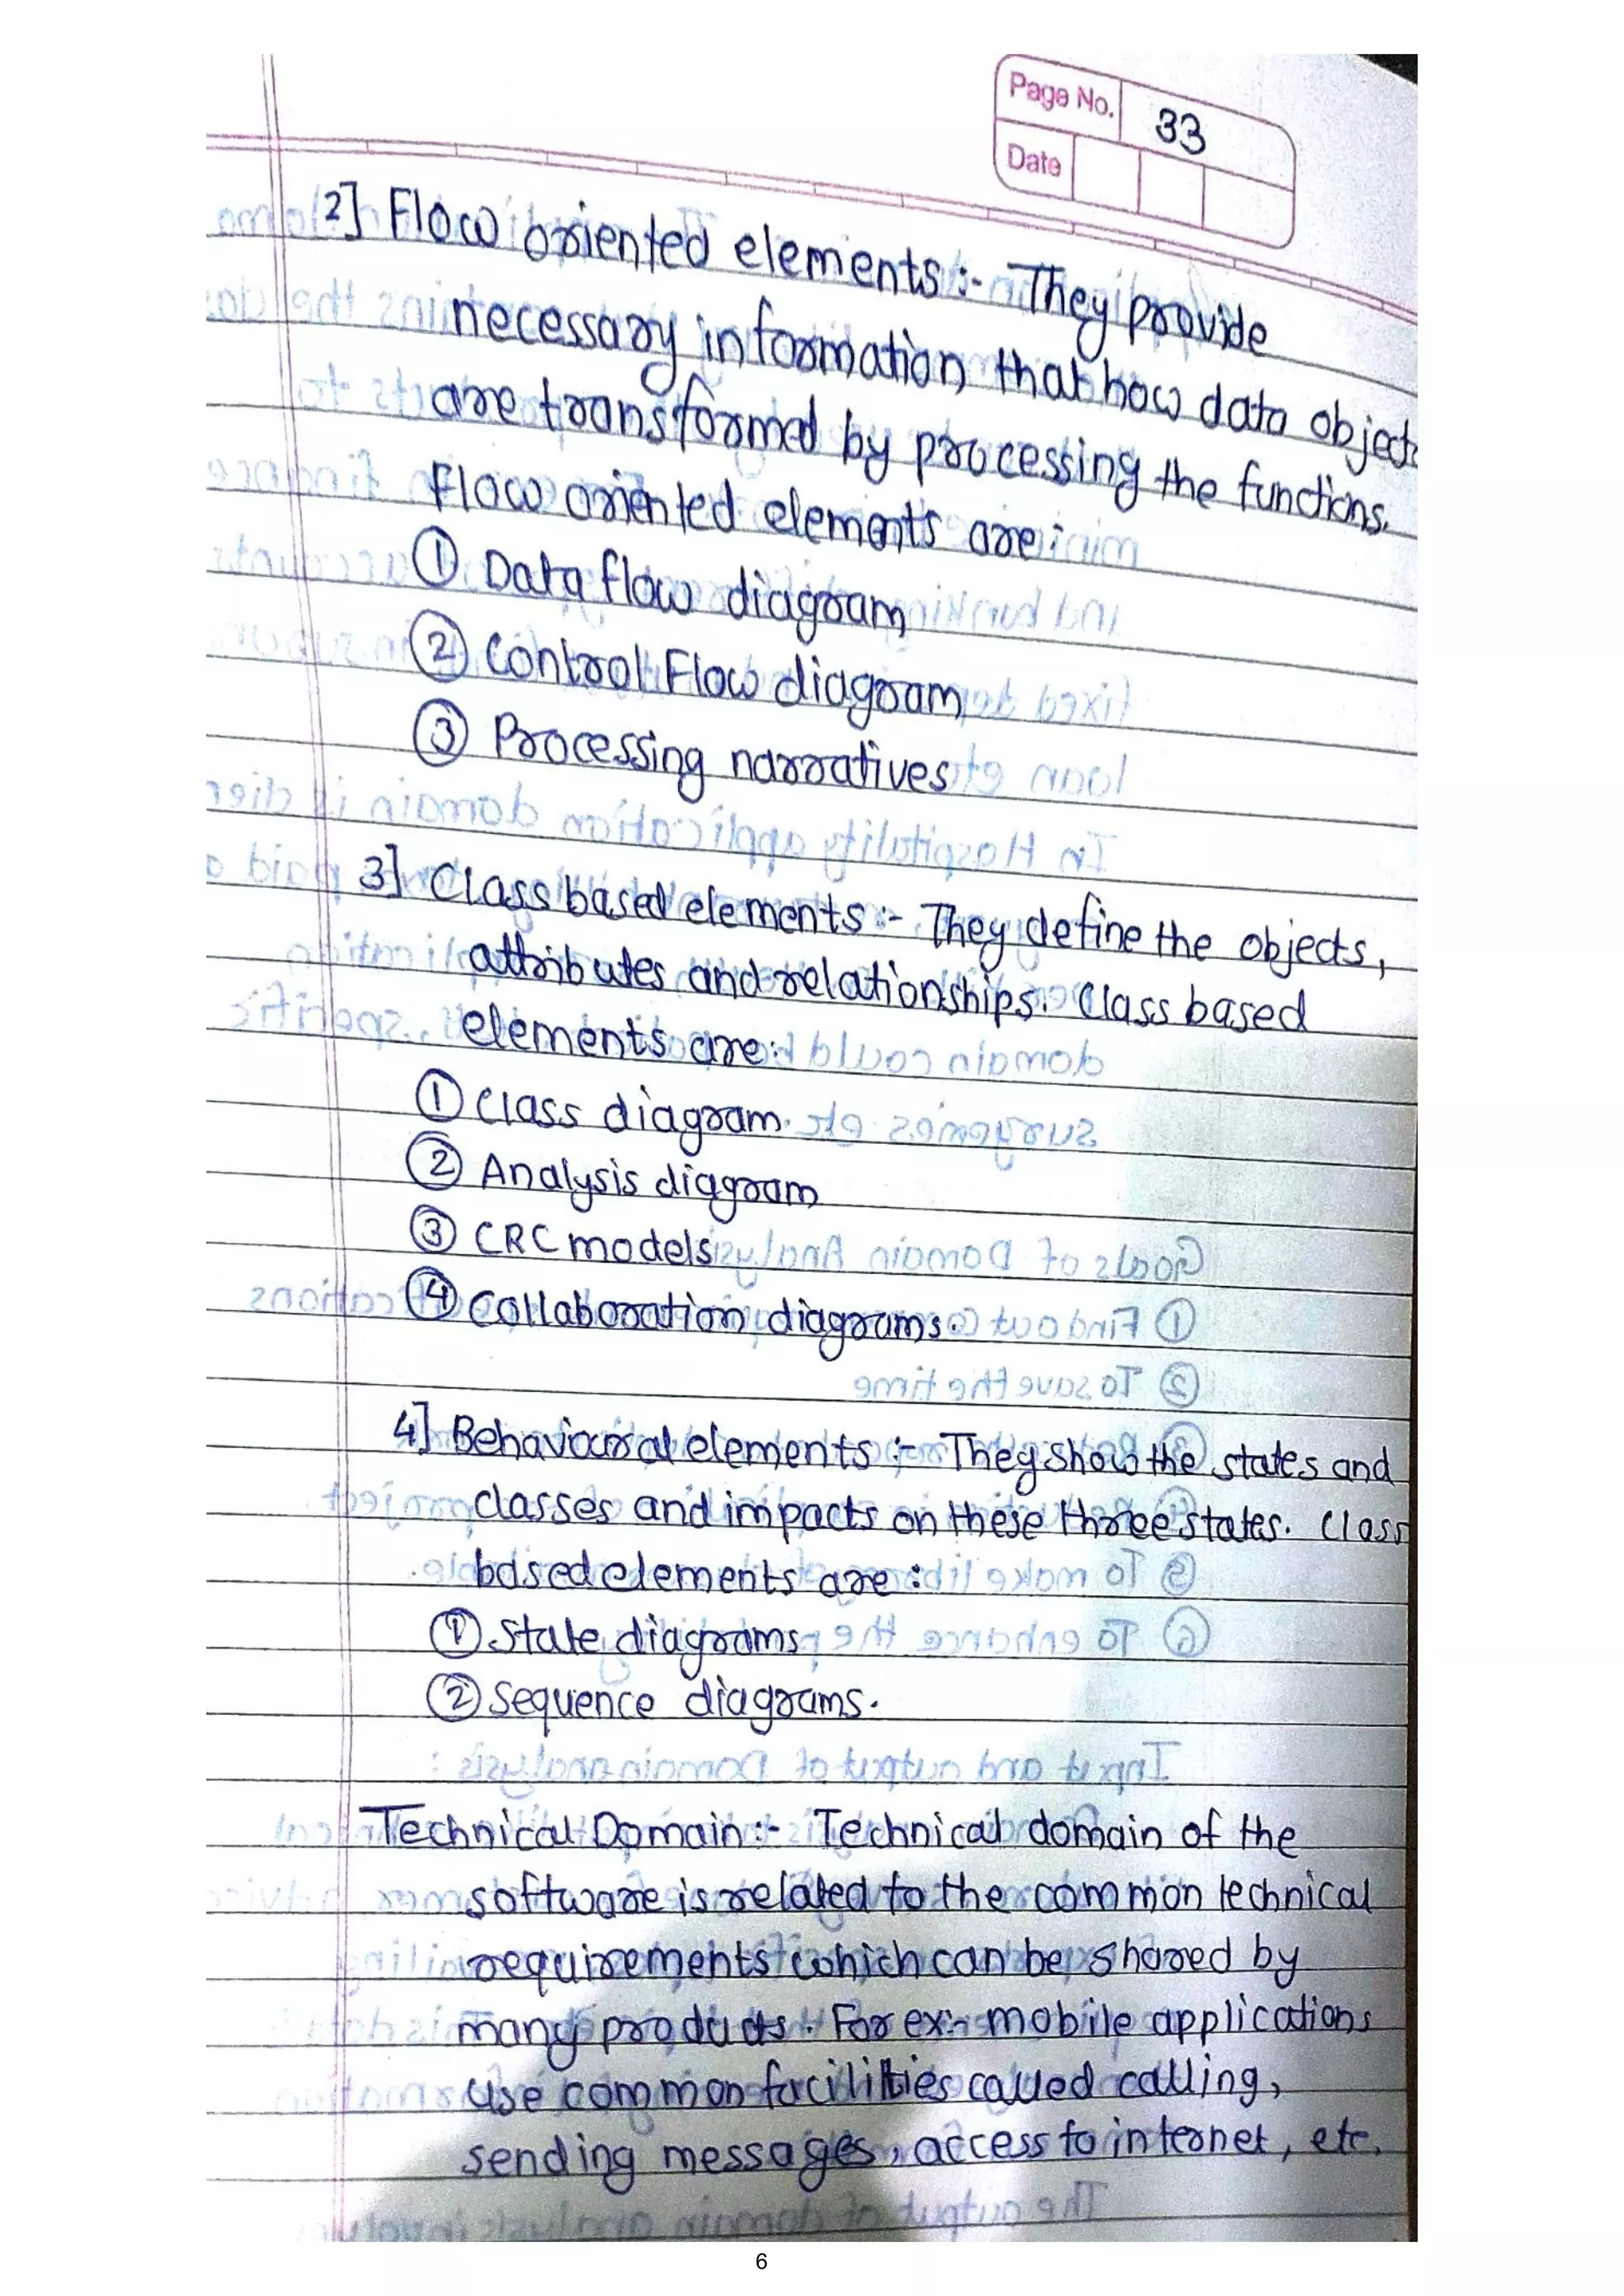 Page No. 33
Date
2] Flow oriented elements :- They provide
necessary information that how data object
are transformed by processing the functions.
Flow oriented elements are:
① Data flow diagram
② Control Flow diagram
③ Processing narratives
3] Class based elements :- They define the objects,
attributes and relationships. Class based
elements are:
① Class diagram.
② Analysis diagram
③ CRC models
④ Collaboration diagrams.
4] Behavioural elements :- They show the states and
classes and impacts on these three states. Class
based elements are :
① State diagrams
② Sequence diagrams.
Technical Domain :- Technical domain of the
software is related to the common technical
requirements which can be shared by
many products. For ex:- mobile applications
use common facilities called calling,
sending messages, access to internet, etc.
6